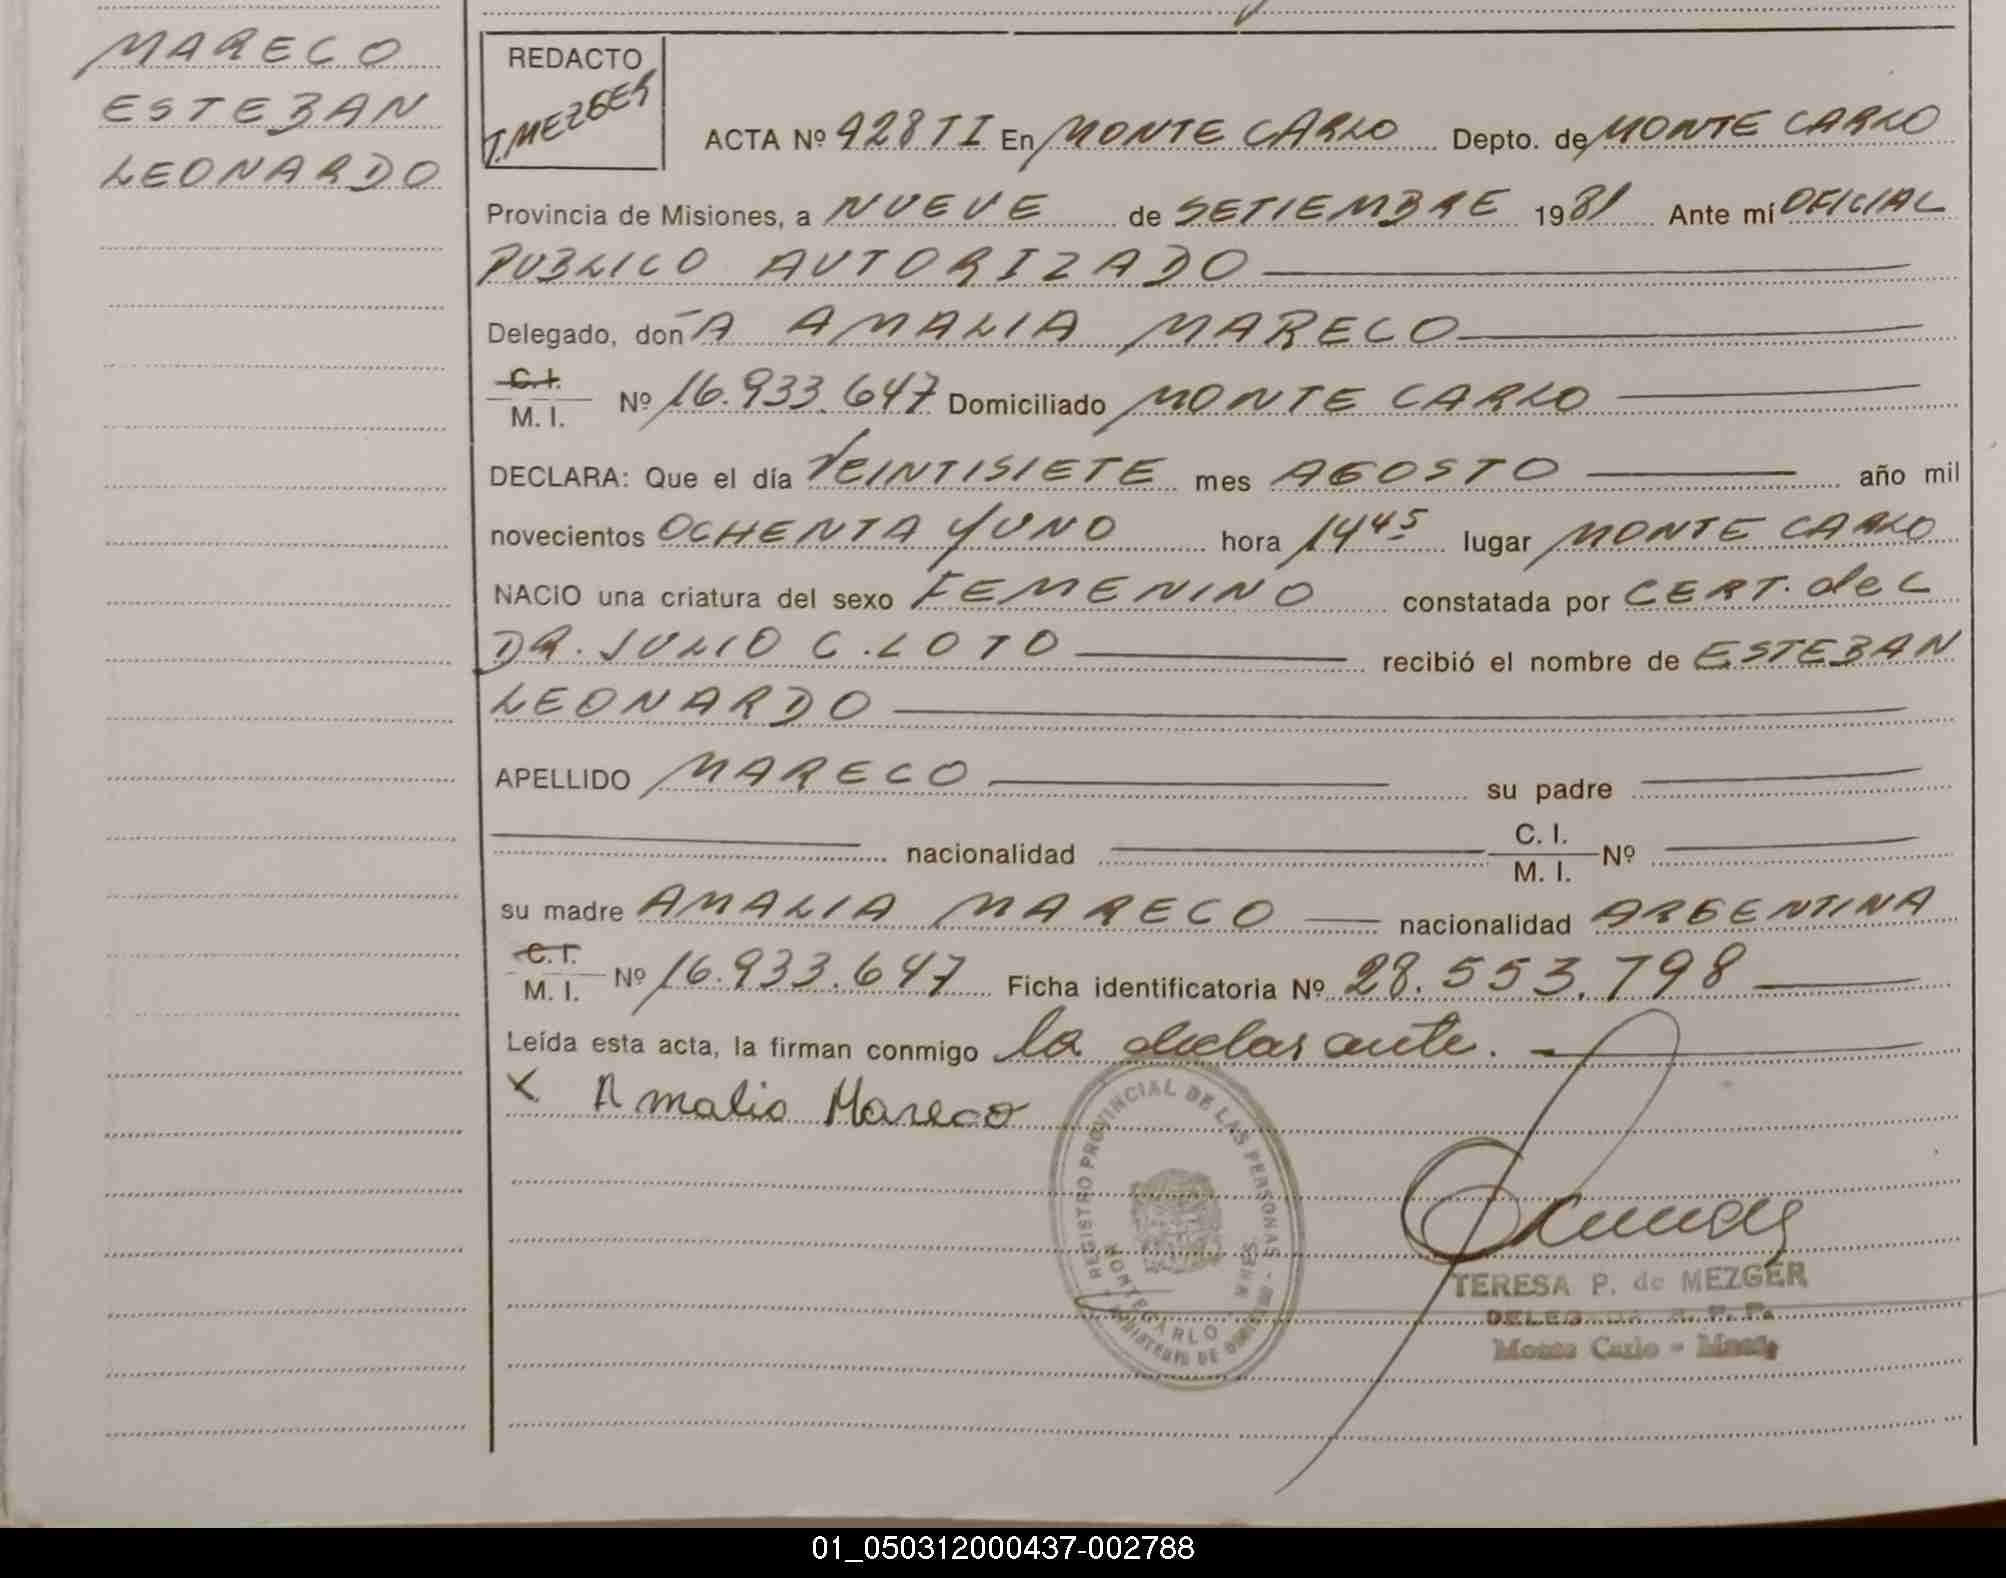 MARECO
ESTEBAN
LEONARDO
REDACTO
T. MEZGER
ACTA Nº 428 TI En MONTE CARLO Depto. de MONTE CARLO
Provincia de Misiones, a NUEVE de SETIEMBRE 1981 Ante mí OFICIAL
PUBLICO AUTORIZADO
Delegado, don A AMALIA MARECO
C. I.
M. I. Nº 16.933.647 Domiciliado MONTE CARLO
DECLARA: Que el día VEINTISIETE mes AGOSTO año mil
novecientos OCHENTA Y UNO hora 14 45 lugar MONTE CARLO
NACIO una criatura del sexo FEMENINO constatada por CERT. del
DR. JULIO C. LOTO recibió el nombre de ESTEBAN
LEONARDO
APELLIDO MARECO su padre
nacionalidad C. I. M. I. Nº
su madre AMALIA MARECO nacionalidad ARGENTINA
C. I.
M. I. Nº 16.933.647 Ficha identificatoria Nº 28.553.798
Leída esta acta, la firman conmigo la declarante.
x Amalia Mareco
REGISTRO PROVINCIAL DE LAS PERSONAS
MONTECARLO
MINISTERIO DE GOBIERNO
TERESA P. de MEZGER
DELEGADA
Monte Carlo - Mnes
01_050312000437-002788